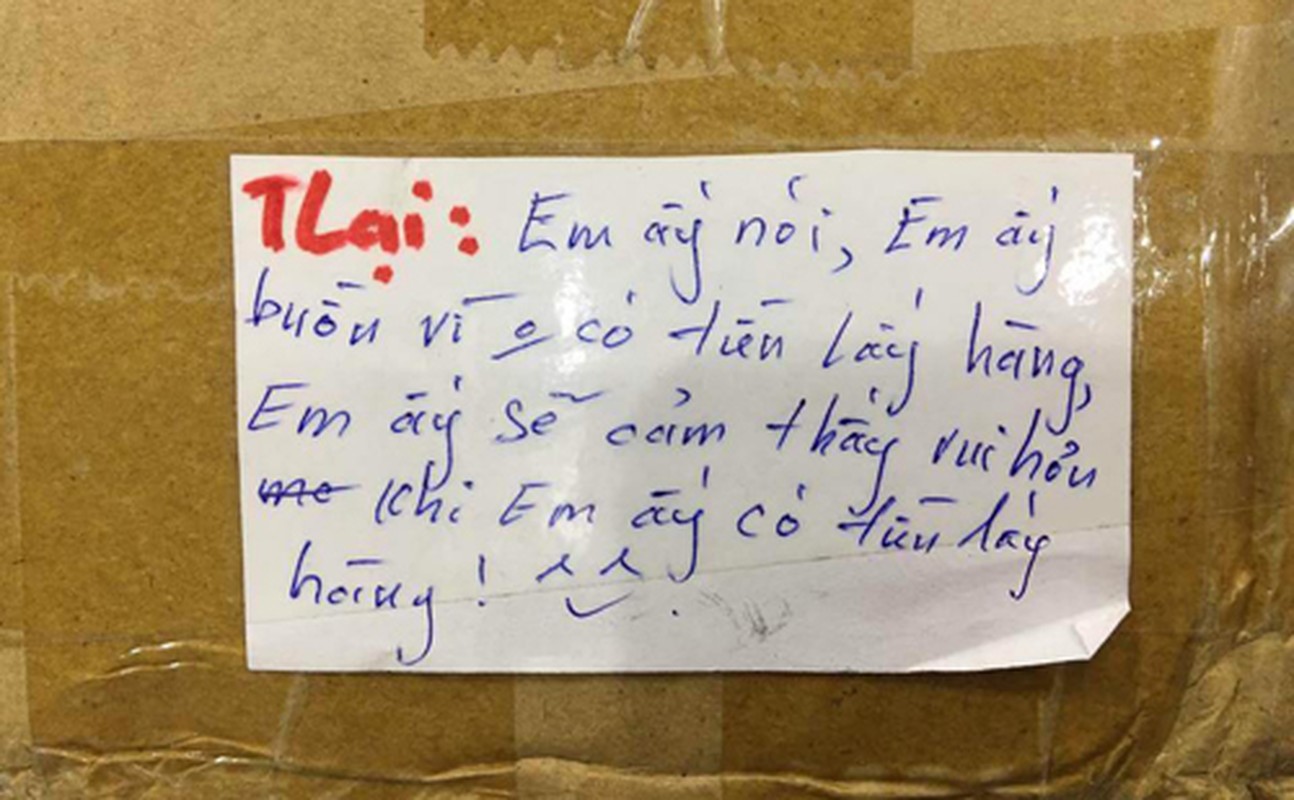 TLại: Em ấy nói, Em ấy
buồn vì o có tiền lấy hàng,
Em ấy sẽ cảm thấy vui hơn
khi Em ấy có tiền lấy
hàng! ^ ^